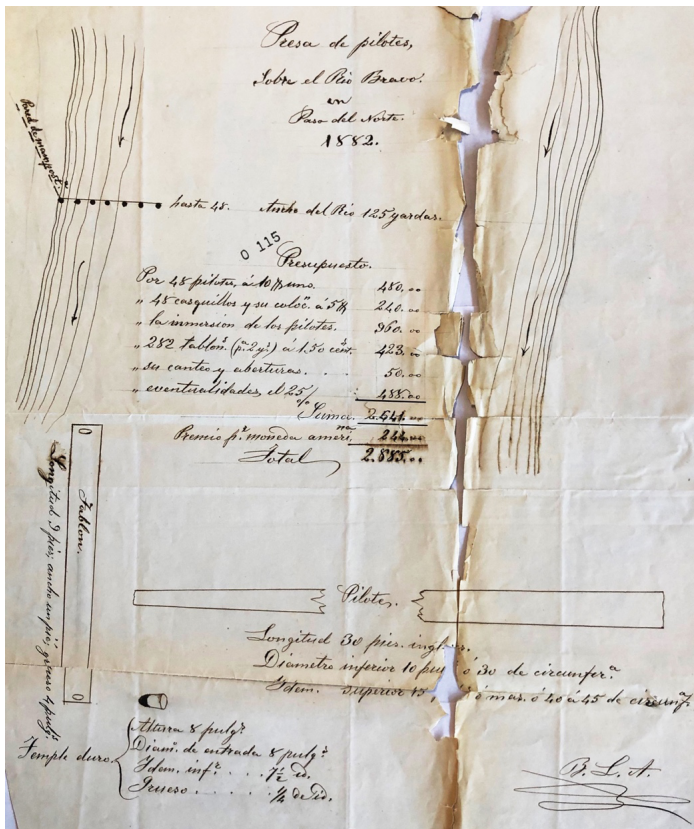 Presa de pilotes,
Sobre el Rio Bravo.
en
Paso del Norte.
1882.
Pared de mampost.ª
hasta 48. Ancho del Rio 125 yardas.
0 115
Presupuesto.
Por 48 pilotes, á 10 uno. 480.00
" 48 casquillos y su coloc.ⁿ á 5 240.00
" la inmersion de los pilotes. 960.00
" 282 tablon.ˢ (p.ª 2 y.ˢ) á 1,50 cent.ˢ 423.00
" su canteo y aberturas. . . . 50.00
" eventualidades, el 25 % 488.00
Suma. 2.641.00
Premio p.ʳ moneda ameri.ⁿᵃ 244.00
Total 2.885.00
Tablon.
Longitud 9 pies; ancho un pié; grueso 4 pulg.ˢ
Pilotes.
Longitud 30 pies. ingl
Diametro inferior 10 pul ó 30 de circunfer.ª
Idem. superior 15 ó mas. ó 40 á 45 de circunf.
Temple duro.
Altura 8 pulg.ˢ
Diam.º de entrada 8 pulg.ˢ
Idem. inf.ʳ . . . . 7½ id.
Grueso . . . . . ¼ de id.
B. L. A.